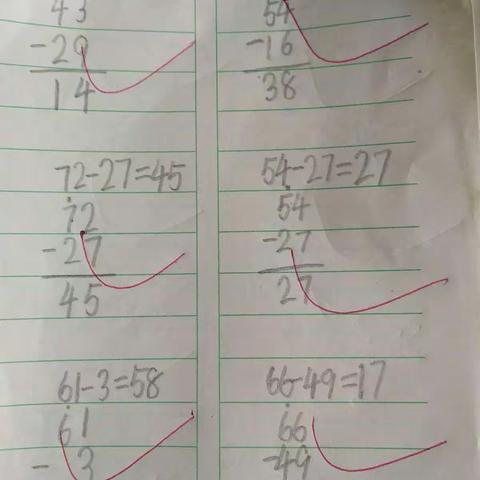 43
-29
14
72-27=45
72
-27
45
61-3=58
61
- 3
54
-16
38
54-27=27
54
-27
27
66-49=17
66
-49